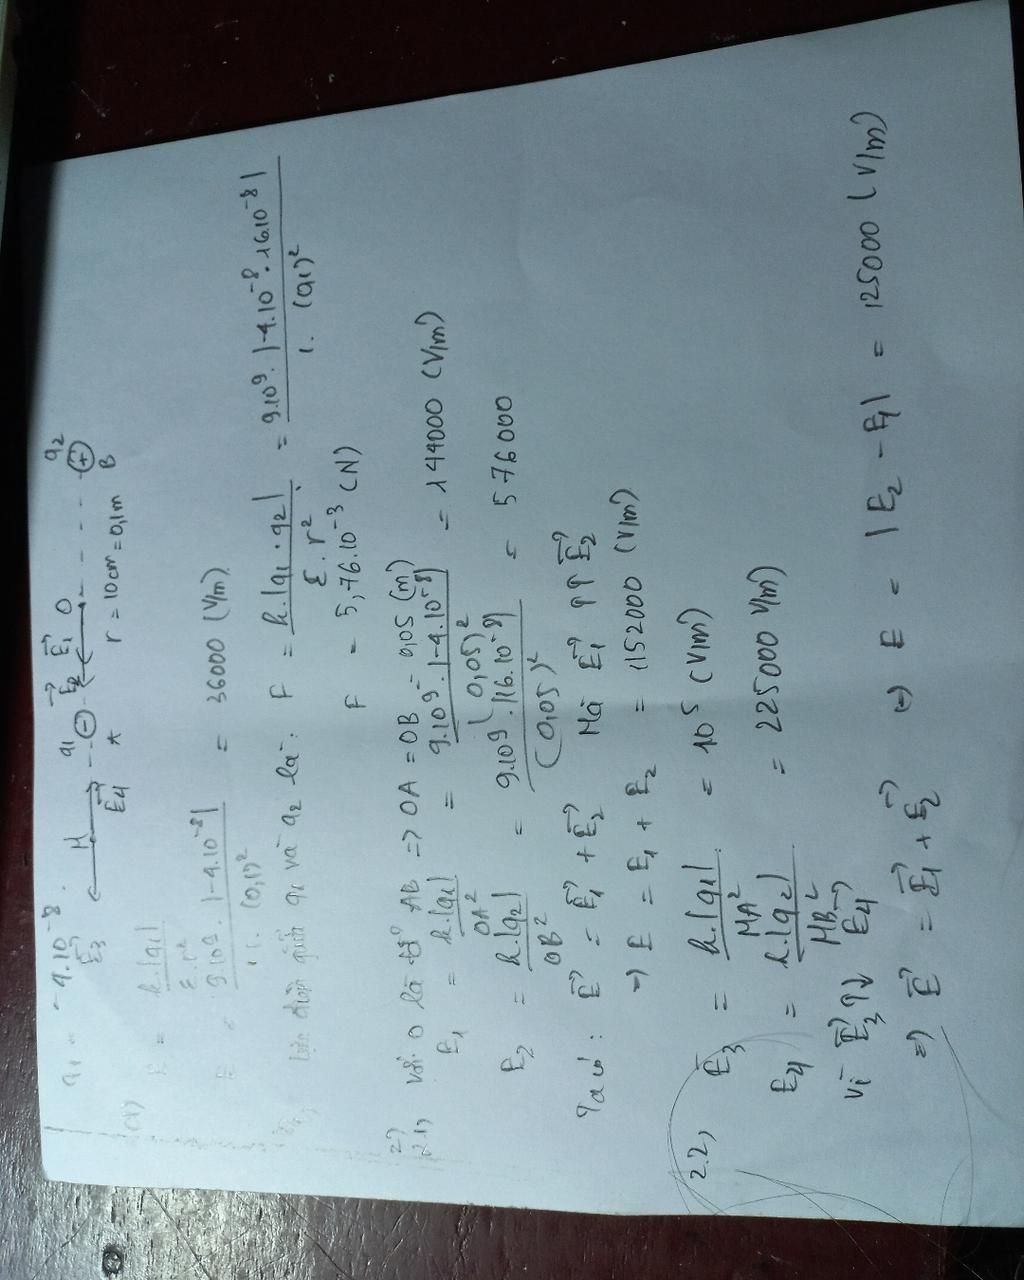 q₁ = -4.10⁻⁸
E₃→ M E₄→ q₁ ⊖ E₂→ E₁→ O q₂ ⊕ B
* r = 10cm = 0,1m
E = k.|q₁| / ε.r²
E = 9.10⁹.|-4.10⁻⁸| / 1.(0,1)² = 36000 (V/m)
điện giữa q₁ và q₂ là: F = k.|q₁.q₂| / ε.r² = 9.10⁹.|-4.10⁻⁸.16.10⁻⁸| / 1.(0,1)²
F = 5,76.10⁻³ (N)
2)
2.1, với O là tđ° AB => OA = OB = 0,05 (m)
E₁ = k.|q₁| / OA² = 9.10⁹.|-4.10⁻⁸| / (0,05)² = 144000 (V/m)
E₂ = k.|q₂| / OB² = 9.10⁹.|16.10⁻⁸| / (0,05)² = 576000
Ta có: E→ = E₁→ + E₂→ Mà E₁→ ↑↑ E₂→
=> E = E₁ + E₂ = 1152000 (V/m)
2.2, E₃ = k.|q₁| / MA² = 10⁵ (V/m)
E₄ = k.|q₂| / MB² = 225000 V/m)
Vì E₃→ ↑↓ E₄→
=> E→ = E₁→ + E₂→ (=) E = |E₂ - E₁| = 125000 (V/m)